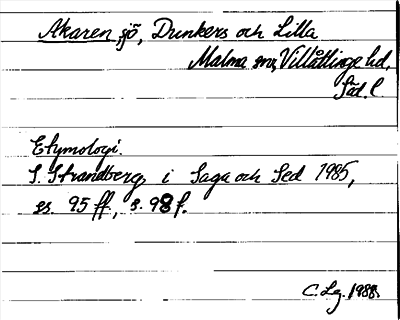 Akaren, sjö, Dunkers och Lilla
Malma snr, Villåttinge hd,
Söd. l.
Etymologi.
S. Strandberg i Saga och Sed 1985,
ss. 95 ff., s. 98 f.
C. Lg. 1988.